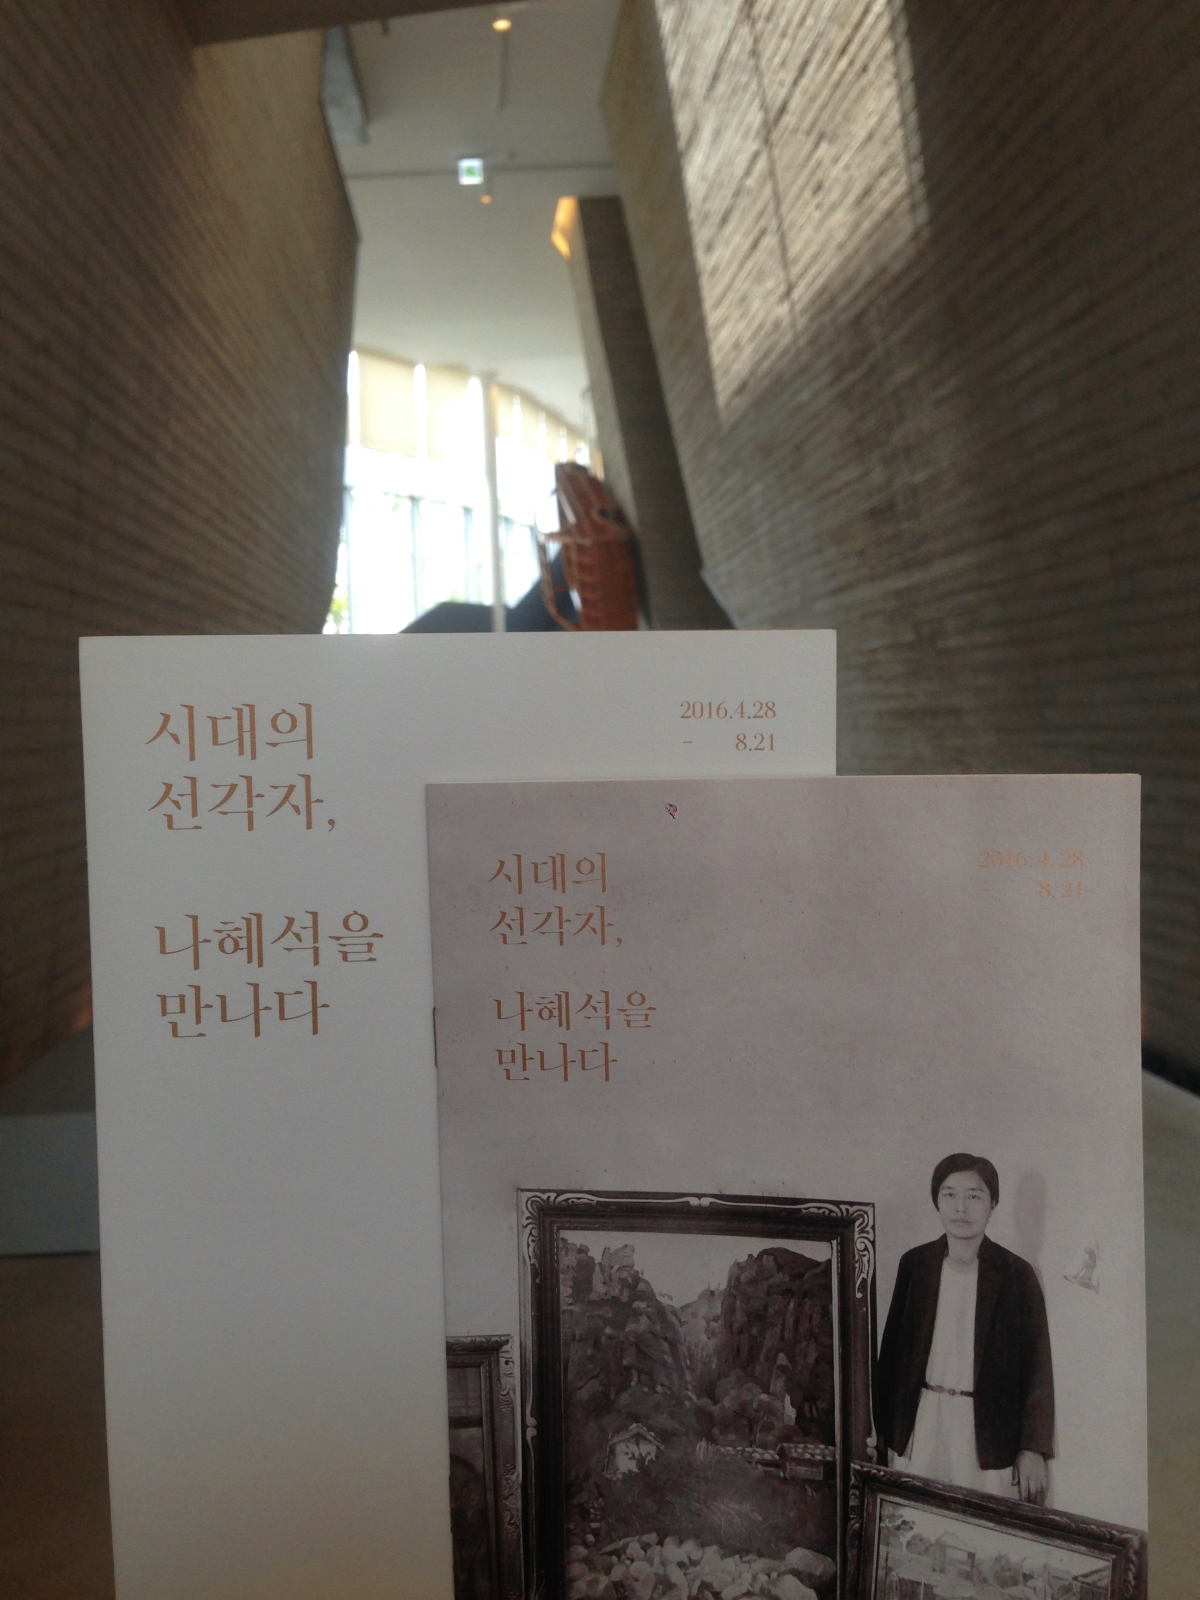 시대의
선각자,
나혜석을
만나다
2016.4.28
- 8.21
시대의
선각자,
나혜석을
만나다
2016.4.28
8.21